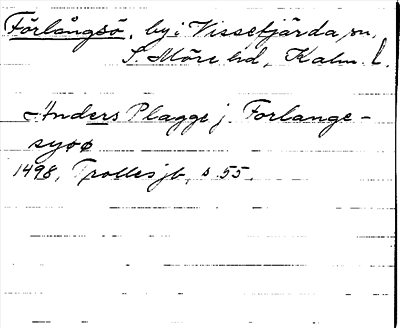 Förlångsö, by i Vissefjärda sn,
S. Möre hd, Kalm. l.
Anders Plagge j. Forlange-
syoø
1498, Trolles jb, s. 55.